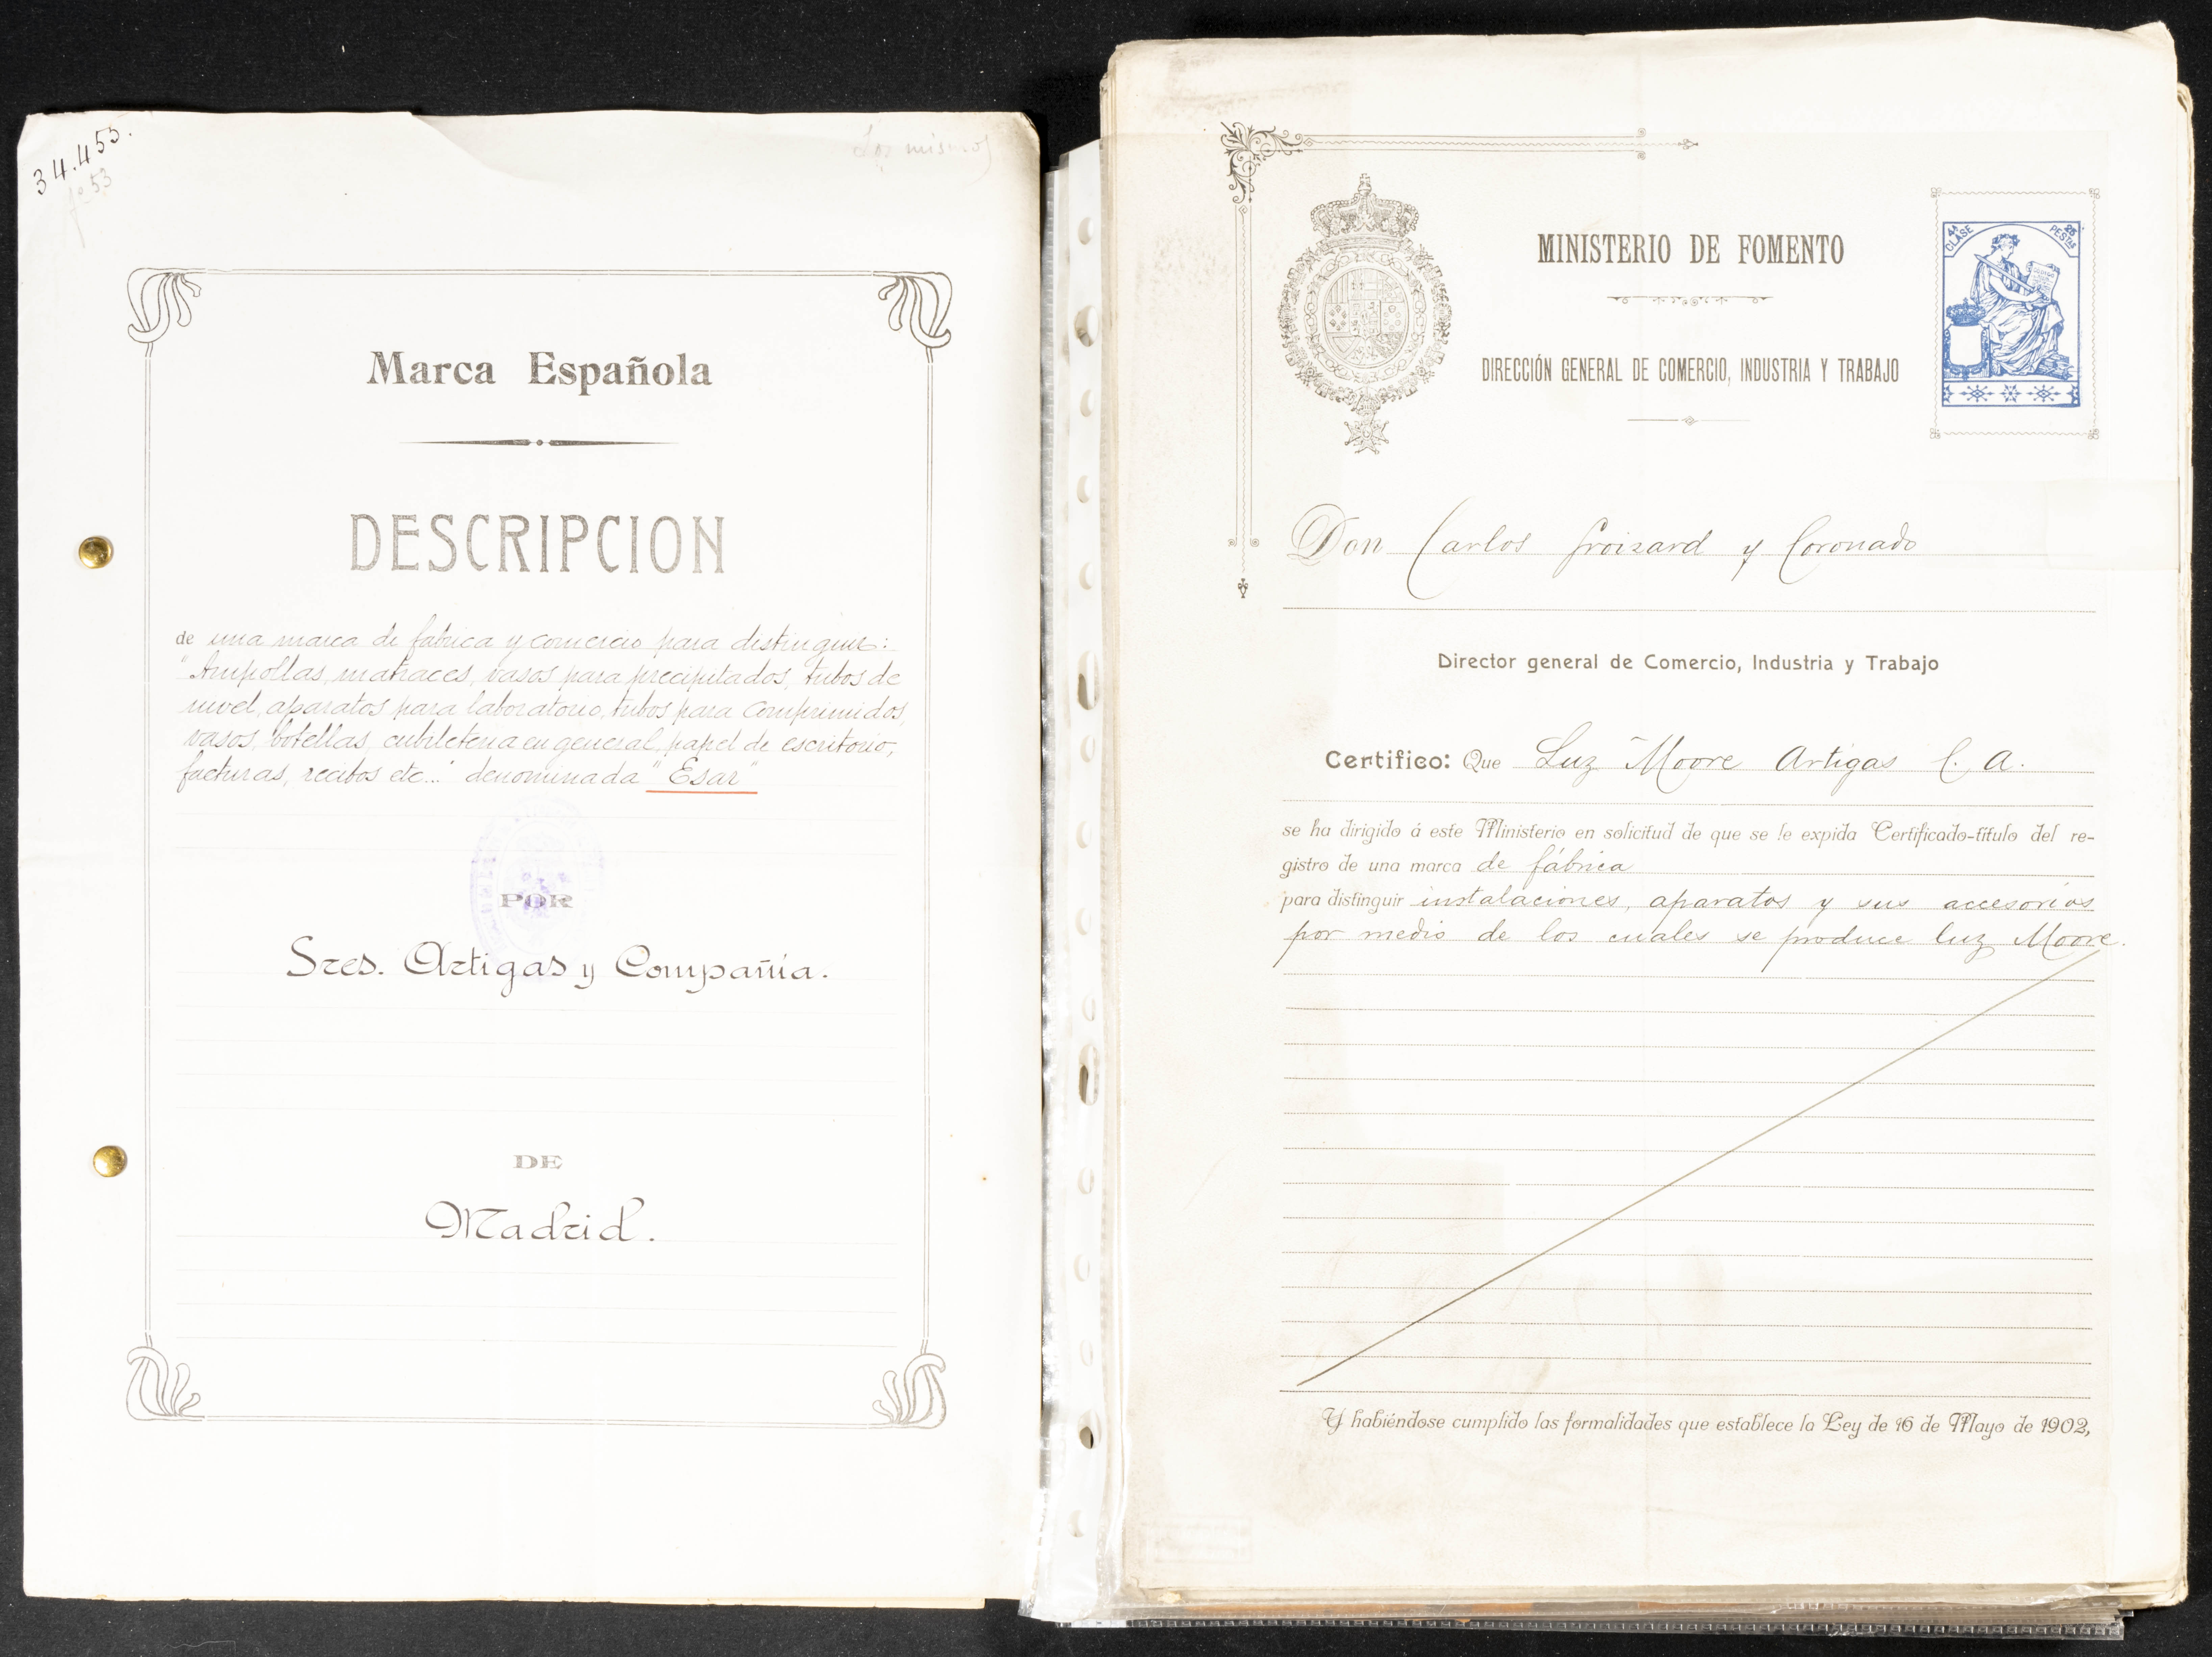 34.453.
fº 53
Los mismos
Marca Española
DESCRIPCION
de una marca de fabrica y comercio para distinguir:
"Ampollas, matraces, vasos para precipitados, tubos de
nivel, aparatos para laboratorio, tubos para comprimidos,
vasos, botellas, cubileteria en general, papel de escritorio,
facturas, recibos etc..." denominada "Esar"
POR
Sres. Artigas y Compañía.
DE
Madrid.
MINISTERIO DE FOMENTO
DIRECCIÓN GENERAL DE COMERCIO, INDUSTRIA Y TRABAJO
4ª CLASE
25 PESTAS
Don Carlos Groizard y Coronado
Director general de Comercio, Industria y Trabajo
Certifico: Que Luz Moore Artigas C. A.
se ha dirigido á este Ministerio en solicitud de que se le expida Certificado-título del re-
gistro de una marca de fábrica
para distinguir instalaciones, aparatos y sus accesorios
por medio de los cuales se produce luz Moore.
Y habiéndose cumplido las formalidades que establece la Ley de 16 de Mayo de 1902,